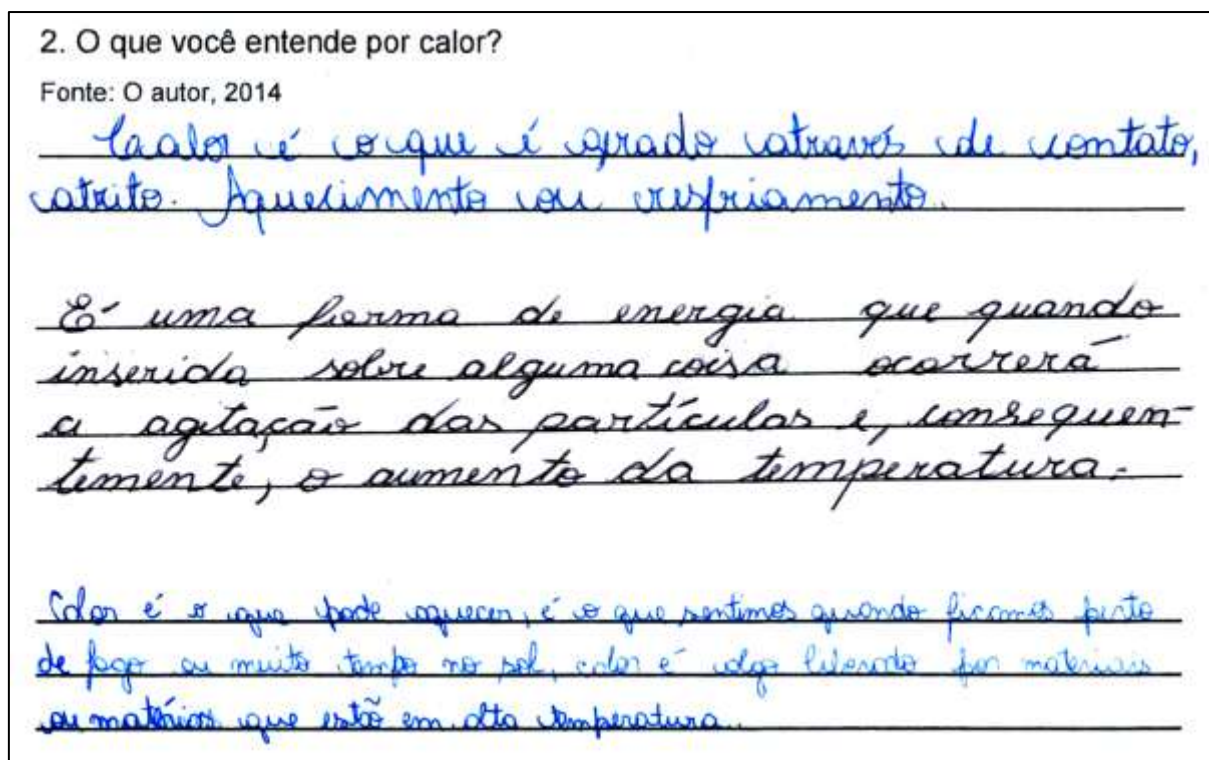 2. O que você entende por calor?
Fonte: O autor, 2014
Caalor é o que é gerado através de contato,
atrito. Aquecimento ou resfriamento.
É uma forma de energia que quando
inserida sobre alguma coisa ocorrerá
a agitação das partículas e, consequen-
temente, o aumento da temperatura.
Calor é o que pode aquecer, é o que sentimos quando ficamos perto
de fogo ou muito tempo no sol, calor é algo liberado por materiais
ou matérias que estão em alta temperatura.